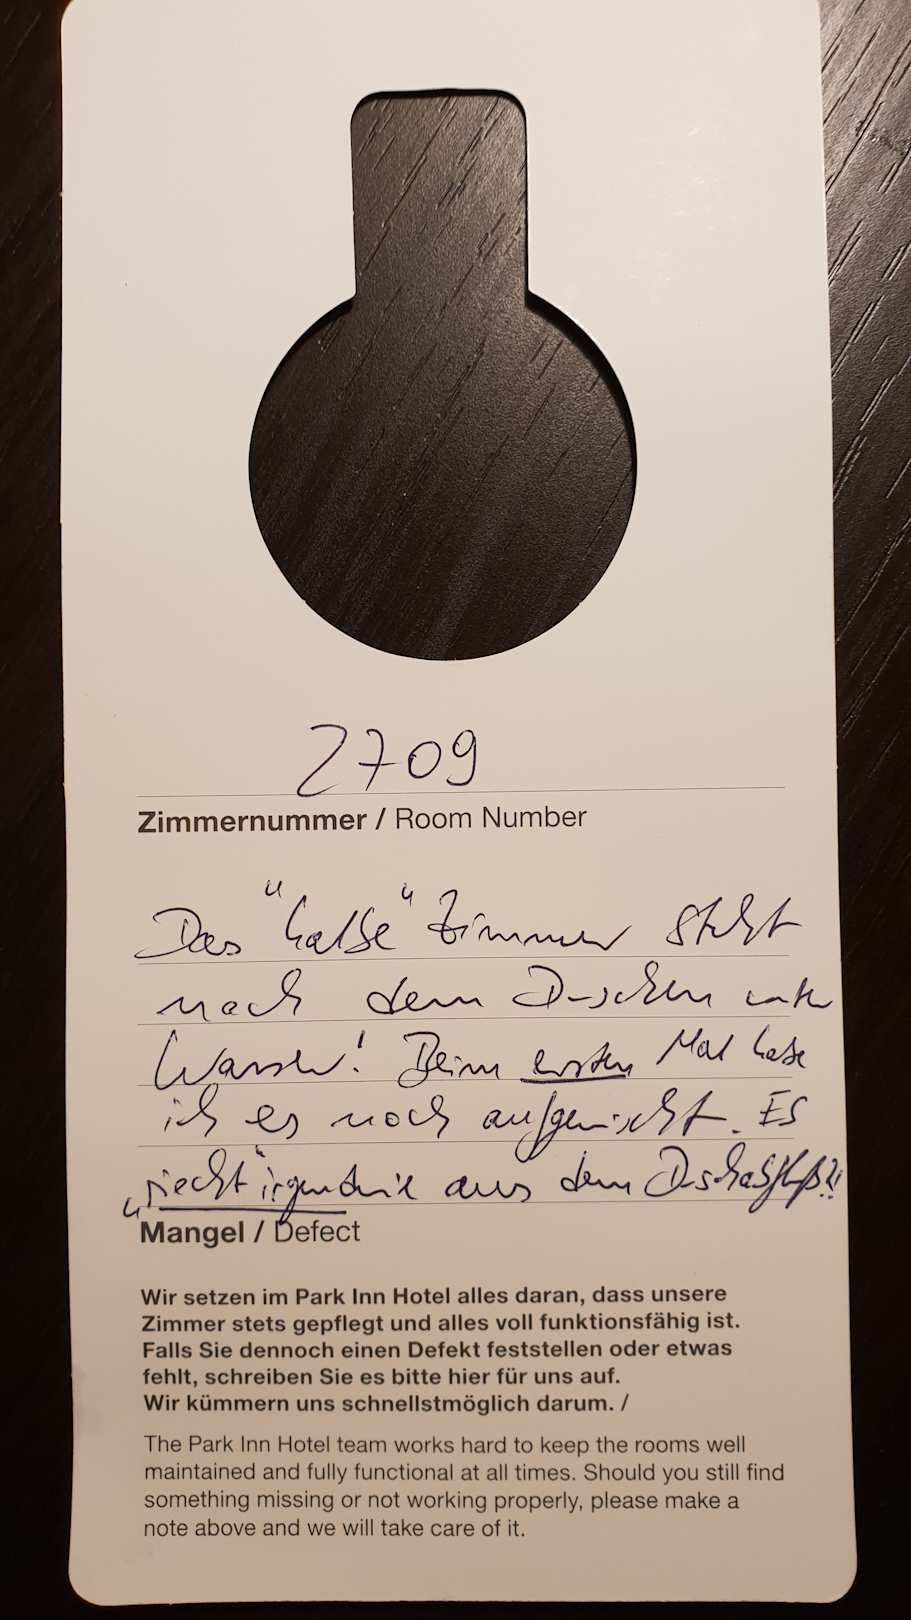 2709
Zimmernummer / Room Number
Das "halbe" Zimmer steht
nach dem Duschen unter
Wasser! Beim ersten Mal habe
ich es noch aufgewischt. ES
"riecht" irgendwie aus dem Duschabfluß?!
Mangel / Defect
Wir setzen im Park Inn Hotel alles daran, dass unsere
Zimmer stets gepflegt und alles voll funktionsfähig ist.
Falls Sie dennoch einen Defekt feststellen oder etwas
fehlt, schreiben Sie es bitte hier für uns auf.
Wir kümmern uns schnellstmöglich darum. /
The Park Inn Hotel team works hard to keep the rooms well
maintained and fully functional at all times. Should you still find
something missing or not working properly, please make a
note above and we will take care of it.